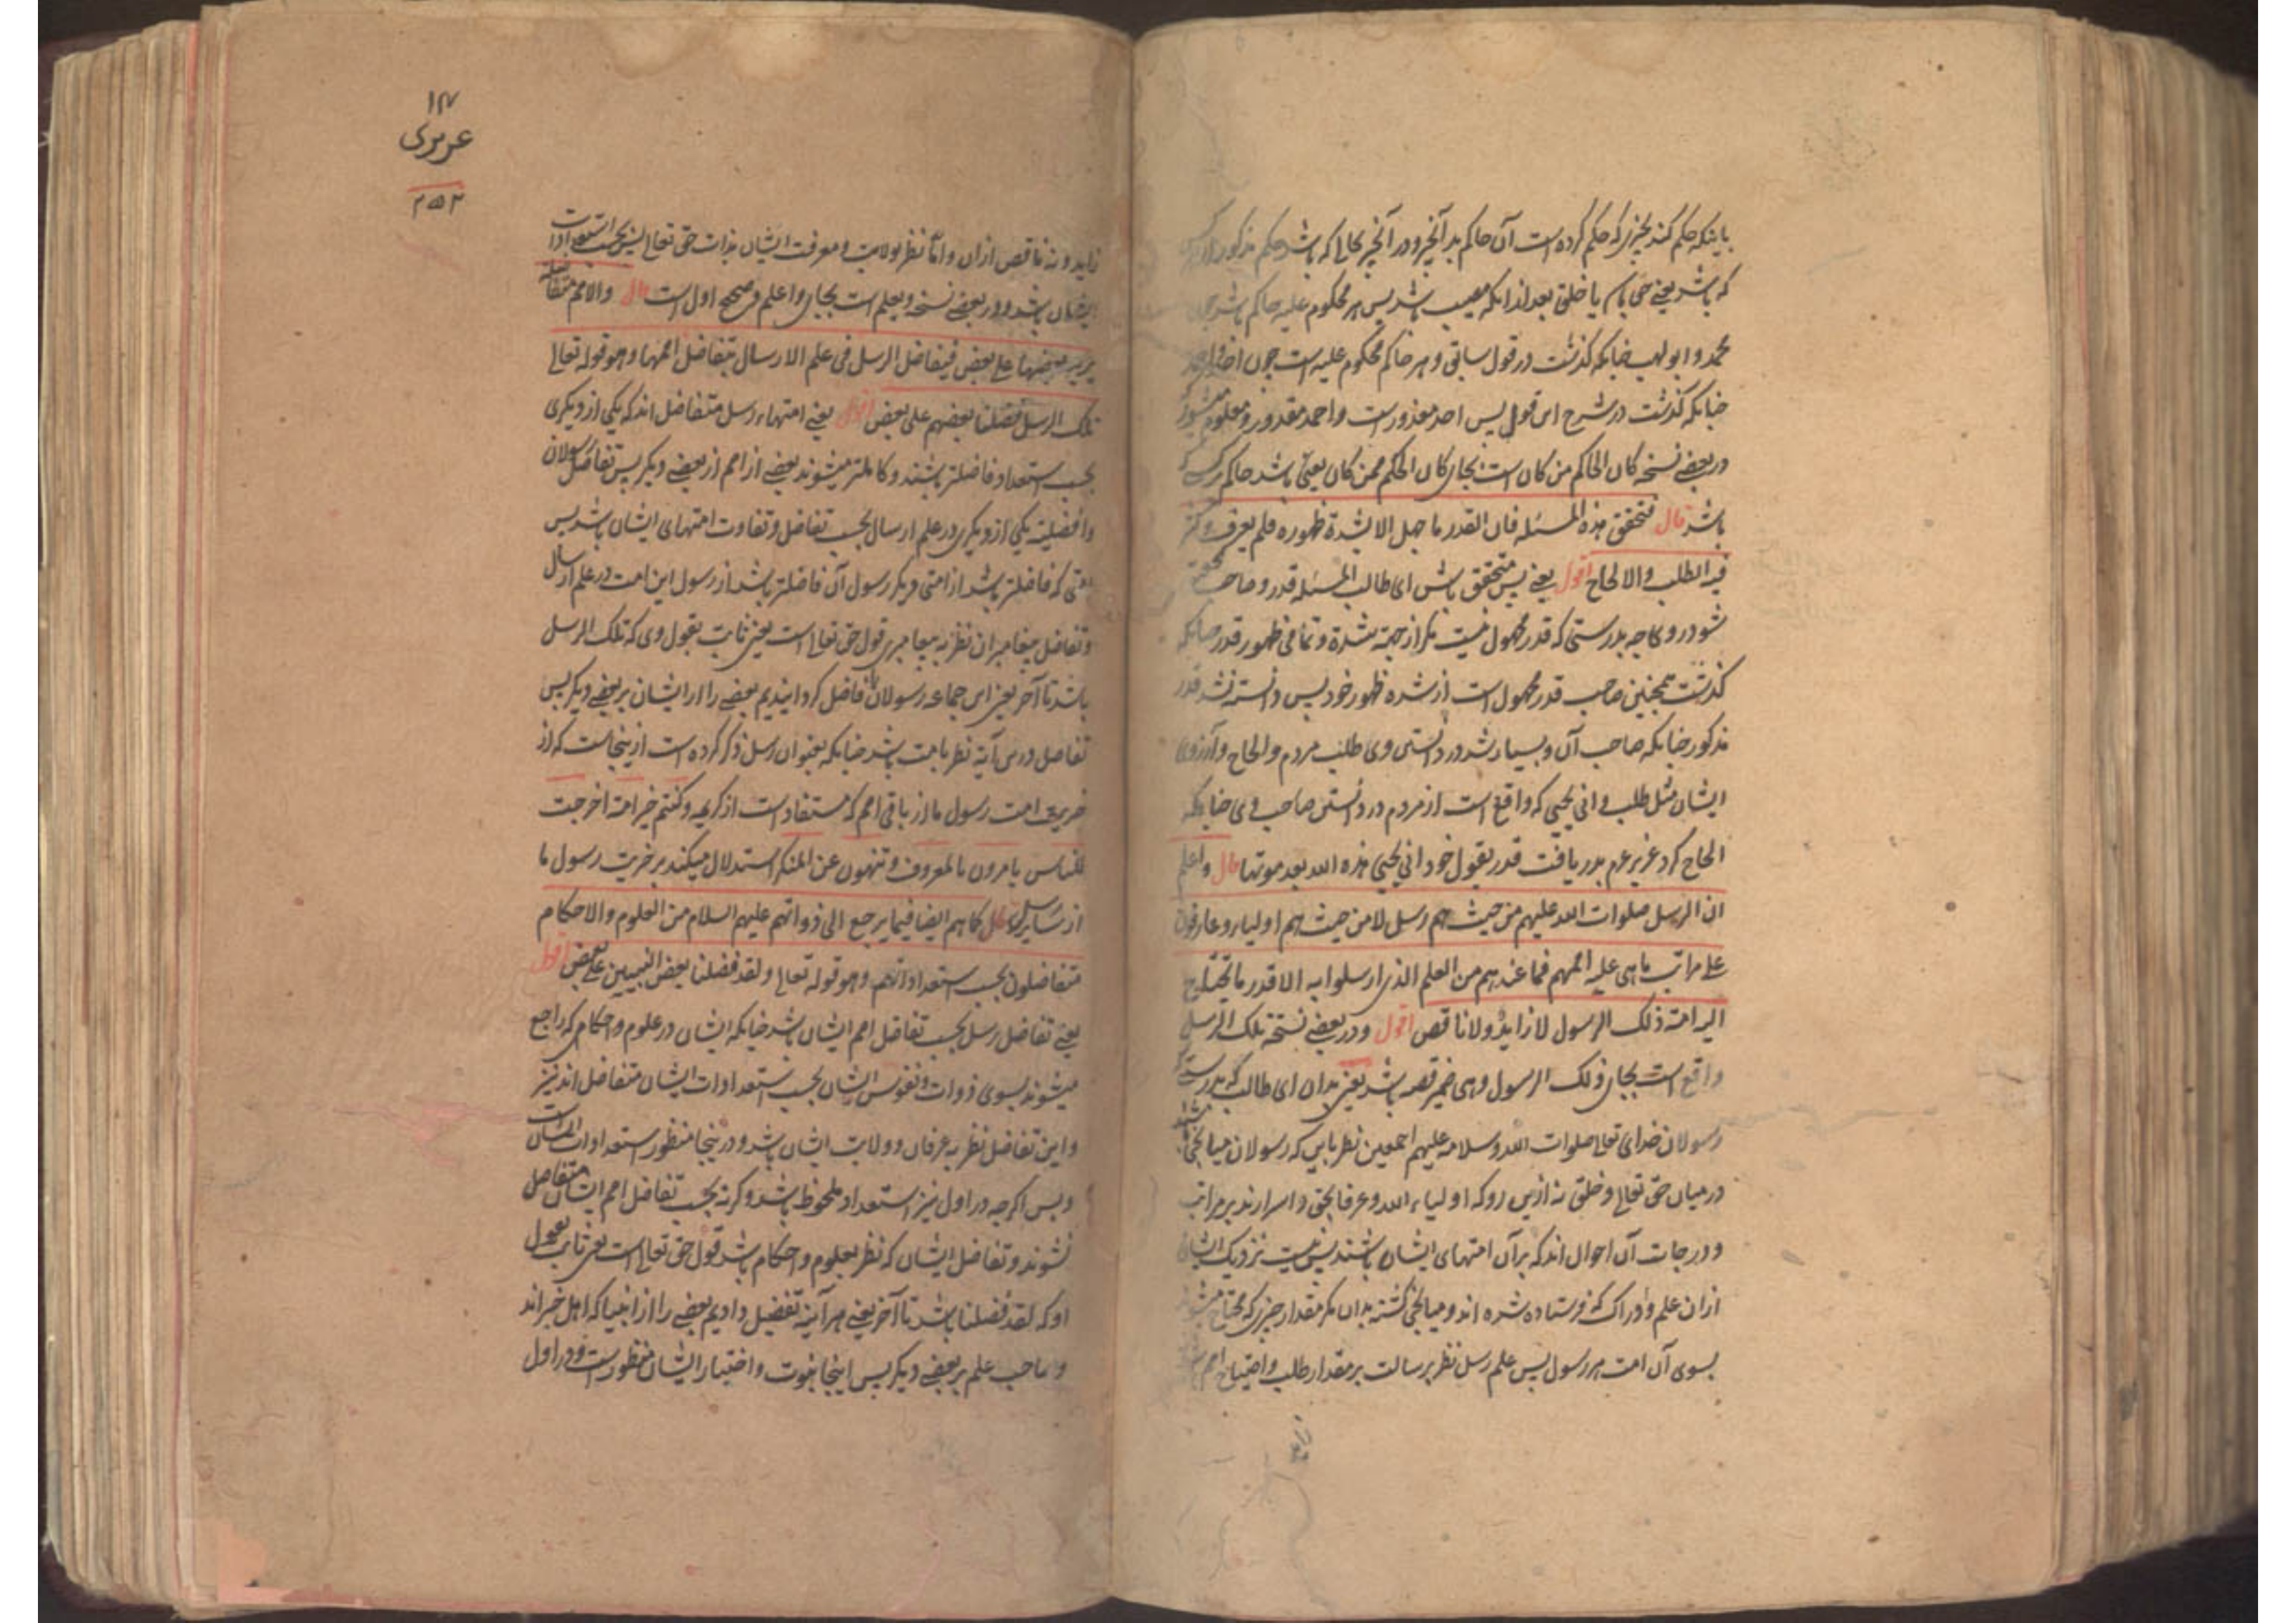 باینکه حکم کند بچیزی که حکم کرده است آن حاکم بدآنچیز و در آنچیز بحالی که باشد حکم مذکور از هر
که باشد یعنی حق باشد یا خلق بعد از انکه مصیب باشد پس هر محکوم علیه حاکم باشد چون
محمد و ابولهب چنانکه کذشت در قول سابق و هر حاکم محکوم علیه است چون احد و احمد
چنانکه کذشت در شرح این قول پس احد معذور است و احمد مقدور و معلوم مشهور
در بعضی نسخه کان الحاکم من کان است بجای کان الحکم ممن کان یعنی باشد حاکم هر کسی که
باشد قال فتحقق هذه المسئله فان القدر ما جهل الا لشدة ظهوره فلم یعرف و کثر
فیه الطلب والالحاح اقول یعنی پس متحقق باش ای طالب المسئله قدر و صاحب تحقیق
شو درو چه بدرستی که قدر مجهول نیست مکر از جهة شدة و تمامی ظهور قدر چنانکه
کذشت همچنین صاحب قدر مجهول است از شده ظهور خود پس دانسته نشد قدر
مذکور چنانکه صاحب آن و بسیار شد در دانستن وی طلب مردم و الحاح و آرزوی
ایشان مثل طلب و انی یحیی که واقع است از مردم در دانستن صاحب وی چنانکه
الحاح کرد عزیر عم بدریافت قدر بقول خود انی یحیی هذه الله بعد موتها قال واعلم
ان الرسل صلوات الله علیهم من حیث هم رسل لا من حیث هم اولیاء و عارفون
علی مراتب ما هی علیه اممهم فما عندهم من العلم الذی ارسلوا به الا قدر ما تحتاج
الیه امة ذلک الرسول لا زاید ولا ناقص اقول و در بعضی نسخه تلک الرسل
واقع است بجای ذلک الرسول و هی ضمیر قصه باشد یعنی بدان ای طالب که بدرستی که
رسولان خدای تعالی صلوات الله و سلامه علیهم اجمعین نظر باین که رسولان میانجی باشند
در میان حق تعالی و خلق نه ازین رو که اولیاء الله و عرفا بحق و اسرارند بر مراتب
و درجات آن احوال اند که بر آن امتهای ایشان باشند پس نیست نزدیک ایشان
ازان علم و ادراک که فرستاده شده اند و میانجی کشته بدان مکر مقدار چیزی که محتاج میشوند
بسوی آن امت هر رسول پس علم رسل نظر برسالت بر مقدار طلب و احتیاج امم باشد
زاید
۱۳
عزیری
۲۵۲
زاید و نه ناقص ازان و امّا نظر بولایت و معرفت ایشان بذات حق تعالی پس بحسب استعدادات
ایشان باشد و در بعضی نسخه و یعلم است بجای واعلم و صحیح اول است قال والامم متفاضله
یزید بعضها علی بعض فیتفاضل الرسل فی علم الارسال بتفاضل اممها وهو قوله تعالی
تلک الرسل فضلنا بعضهم علی بعض اقول یعنی امتهاء رسل متفاضل اند که یکی از دیکری
بحسب استعداد فاضلتر باشند و کاملتر میشوند بعضی از امم از بعضی دیکر پس تفاضل رسولان
و افضلیة یکی از دیکری در علم ارسال بحسب تفاضل و تفاوت امتهای ایشان باشد پس
امتی که فاضلتر باشد از امتی دیکر رسول آن فاضلتر باشد از رسول این امت در علم ارسال
و تفاضل پیغامبران نظر به پیغامبری قول حق تعالی است یعنی ثابت بقول وی که تلک الرسل
باشد تا آخر یعنی این جماعه رسولان فاضل کردانیدیم بعضی را از ایشان بر بعضی دیکر پس
تفاضل درین آیة نظر بامت باشد چنانکه بعنوان رسل ذکر کرده است ازینجاست که از
خیریت امت رسول ما از باقی امم که مستفاد است از کریمه و کنتم خیر امة اخرجت
للناس یامرون بالمعروف و تنهون عن المنکر استدلال میکند بر خیریت رسول ما
از سایر رسل قال کما هم ایضا فیما یرجع الی ذواتهم علیهم السلام من العلوم والاحکام
متفاضلون بحسب استعداداتهم وهو قوله تعالی ولقد فضلنا بعض النبیین علی بعض اقول
یعنی تفاضل رسل بحسب تفاضل امم ایشان باشد چنانکه ایشان در علوم و احکامی که راجع
میشوند بسوی ذوات و نفوس ایشان بحسب استعدادات ایشان متفاضل اند نیز
و این تفاضل نظر به عرفان و ولایت ایشان باشد و درینجا منظور استعدادات ایشان است
و بس اکرچه در اول نیز استعداد ملحوظ باشد و کرنه بحسب تفاضل امم ایشان متفاضل
نشوند و تفاضل ایشان که نظر بعلوم و احکام باشد قول حق تعالی است یعنی ثابت بقول
او که لقد فضلنا باشد تا آخر یعنی هر آینه تفضیل دادیم بعضی را از انبیا که اهل خبر اند
و صاحب علم بر بعضی دیکر پس اینجا نبوت و اختیار ایشان منظور است و در اول